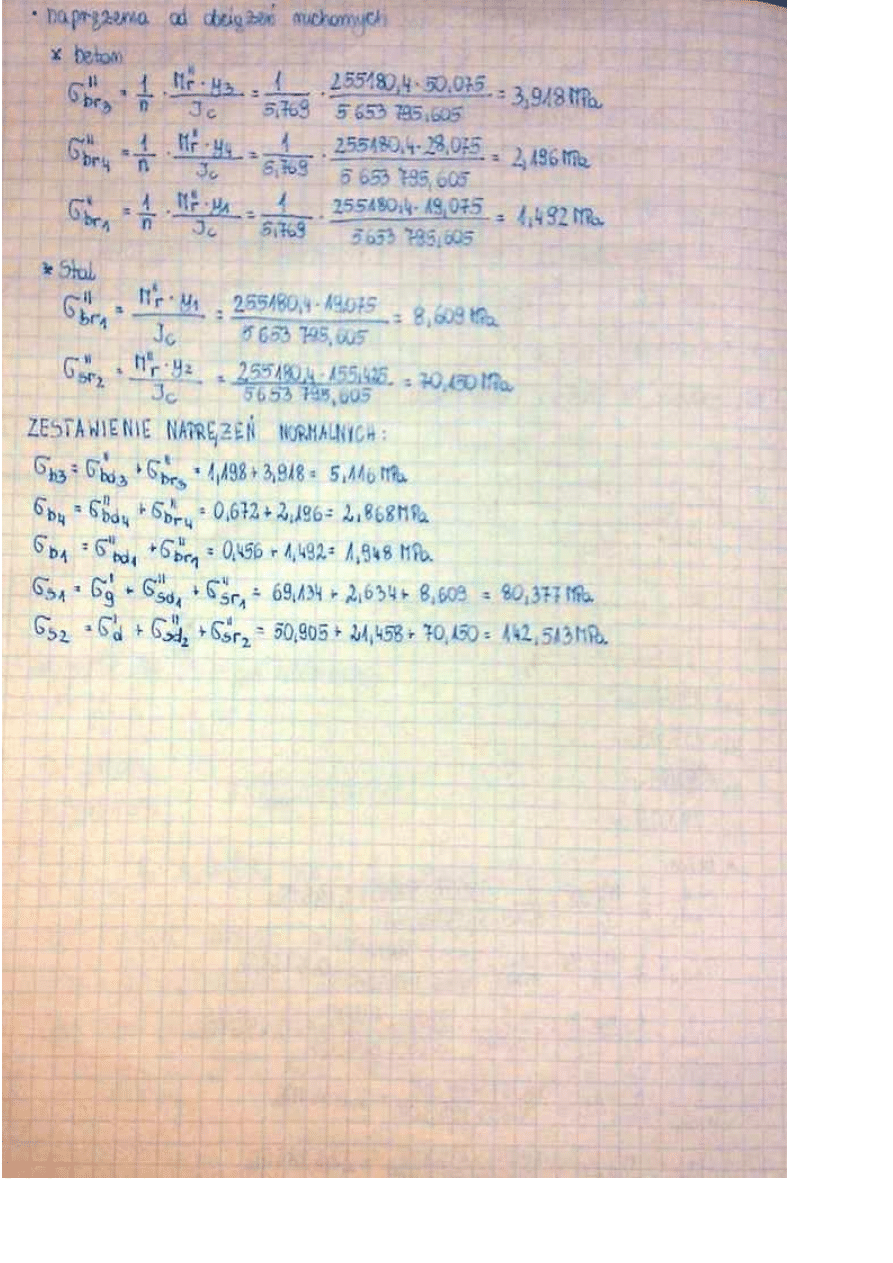 · naprężenia od obciążeń ruchomych
* beton
σ''br3 = 1/n · Mr''·y3/Jc = 1/5,769 · 255180,4·50,075/5 653 795,605 = 3,918 MPa
σ''br4 = 1/n · Mr''·y4/Jc = 1/5,769 · 255180,4·28,075/5 653 795,605 = 2,196 MPa
σ''br1 = 1/n · Mr''·y1/Jc = 1/5,769 · 255180,4·19,075/5653 795,605 = 1,492 MPa
* Stal
σ''br1 = Mr''·y1/Jc = 255180,4·19,075/5 653 795,605 = 8,609 MPa
σ''sr2 = Mr''·y2/Jc = 255180,4·155,425/5653 795,605 = 70,150 MPa
ZESTAWIENIE NAPRĘŻEŃ NORMALNYCH:
σb3 = σ''bd3 + σ''br3 = 1,198 + 3,918 = 5,116 MPa
σb4 = σ''bd4 + σ''br4 = 0,672 + 2,196 = 2,868 MPa
σb1 = σ''bd1 + σ''br1 = 0,456 + 1,492 = 1,948 MPa
σs1 = σ'g + σ''sd1 + σ''sr1 = 69,134 + 2,634 + 8,609 = 80,377 MPa
σs2 = σ'd + σ''sd2 + σ''sr2 = 50,905 + 21,458 + 70,150 = 142,513 MPa